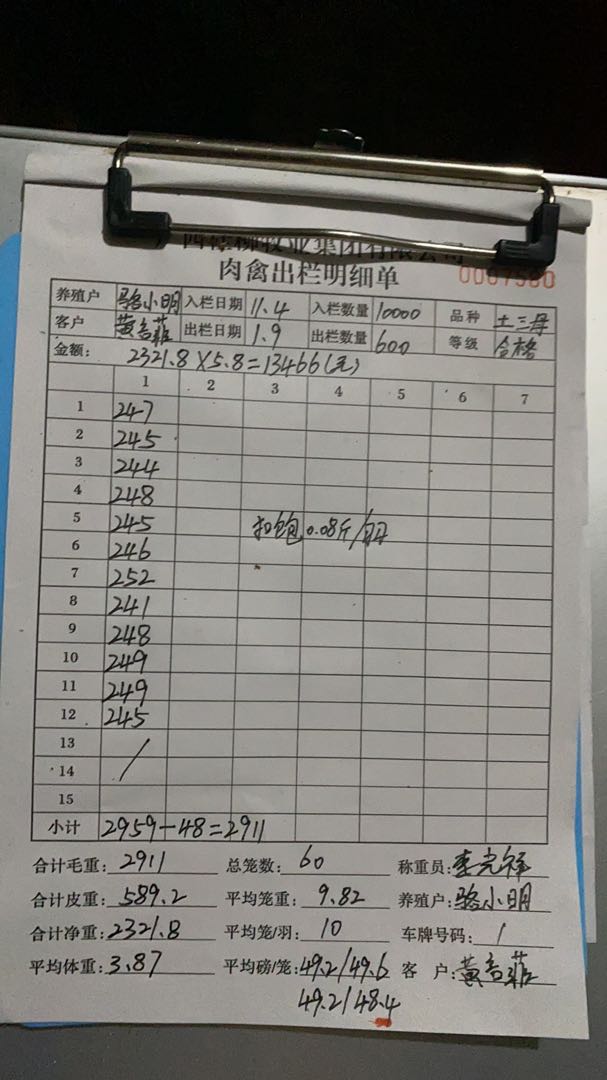 西穗柳牧业集团有限公司
肉禽出栏明细单 0007580
养殖户 骆小明 入栏日期 11.4 入栏数量 10000 品种 土三母
客户 出栏日期 1.9 出栏数量 600 等级 合格
金额: 2321.8×5.8=13466(元)
1 2 3 4 5 6 7
1 247
2 245
3 244
4 248
5 245 扣饱0.08斤/羽
6 246
7 252
8 241
9 248
10 249
11 249
12 245
13
14 /
15
小计 2959-48=2911
合计毛重: 2911 总笼数: 60 称重员:
合计皮重: 589.2 平均笼重: 9.82 养殖户: 骆小明
合计净重: 2321.8 平均笼/羽: 10 车牌号码: /
平均体重: 3.87 平均磅/笼: 49.2/49.6 客 户:
49.2/48.4